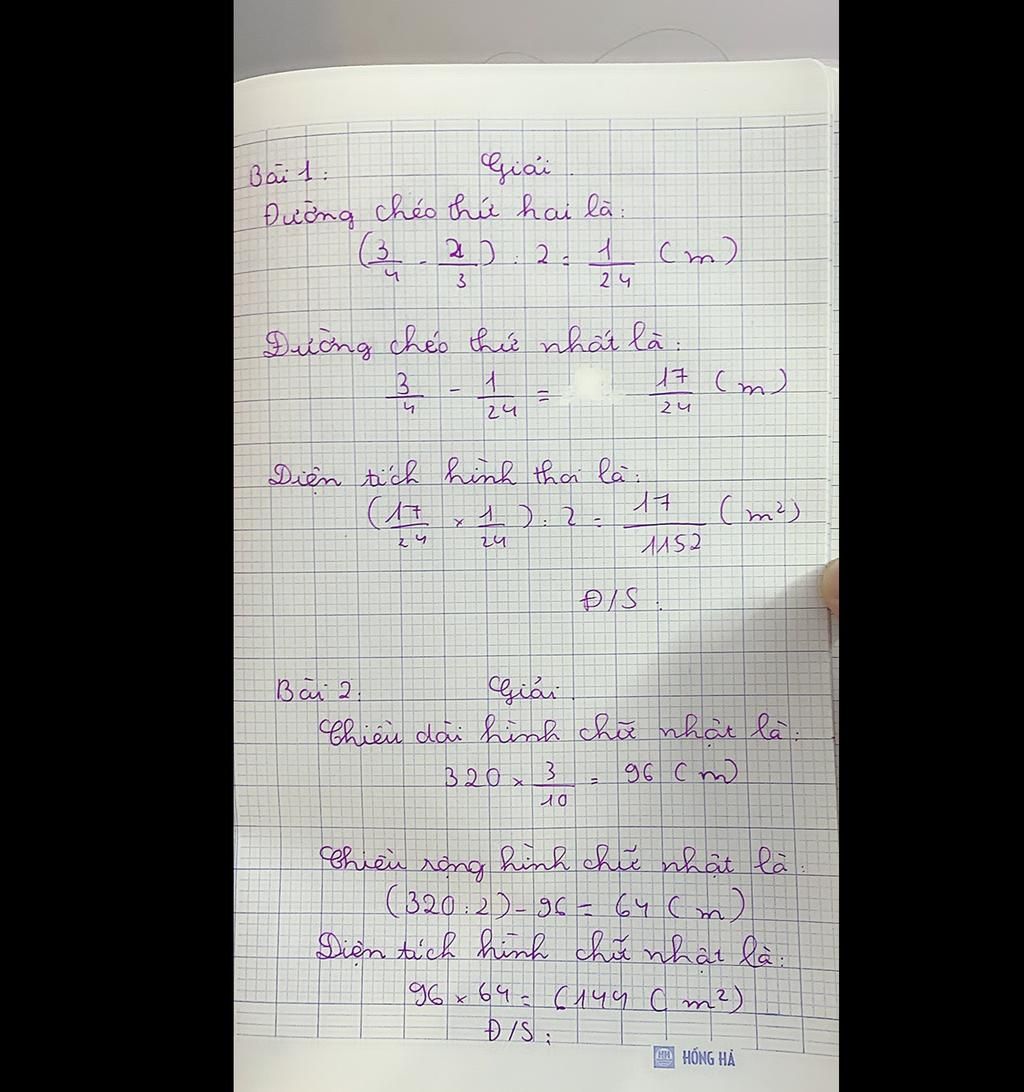 Bài 1: Giải.
Đường chéo thứ hai là:
(3/4 - 2/3) : 2 = 1/24 (m)
Đường chéo thứ nhất là:
3/4 - 1/24 = 17/24 (m)
Diện tích hình thoi là:
(17/24 × 1/24) : 2 = 17/1152 (m²)
Đ/S:
Bài 2: Giải.
Chiều dài hình chữ nhật là:
320 × 3/10 = 96 (m)
Chiều rộng hình chữ nhật là:
(320 : 2) - 96 = 64 (m)
Diện tích hình chữ nhật là:
96 × 64 = 6144 (m²)
Đ/S:
HH HỒNG HÀ